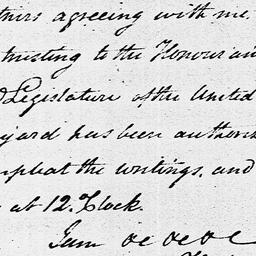 agreeing with me.
trusting to the Honour
Legislature of the United
yard has been
compleat the writings, and
at 12. Clock.
I am &c &c &c